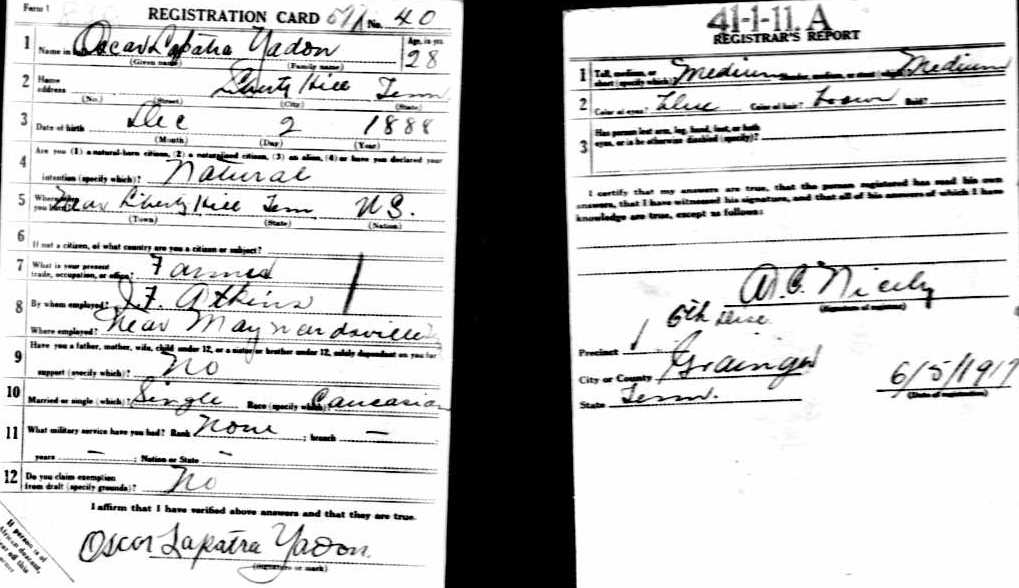 Form 1
REGISTRATION CARD No. 40
1 Name in Oscar Lapatra Yadon Age, in yrs. 28
(Given name) (Family name)
2 Home address Liberty Hill Tenn
(No.) (Street) (City) (State)
3 Date of birth Dec 2 1888
(Month) (Day) (Year)
Are you (1) a natural-born citizen, (2) a naturalized citizen, (3) an alien, (4) or have you declared your
4 intention (specify which)? Natural
5 Where you Near Liberty Hill Tenn U.S.
(Town) (State) (Nation)
6 If not a citizen, of what country are you a citizen or subject?
7 What is your present trade, occupation, or office? Farmer
8 By whom employed? Atkins
Where employed? Near Maynardsville
9 Have you a father, mother, wife, child under 12, or a sister or brother under 12, solely dependent on you for
support (specify which)? No
10 Married or single (which)? Single Race (specify which)? Caucasian
11 What military service have you had? Rank None ; branch —
years — ; Nation or State —
12 Do you claim exemption from draft (specify grounds)? No
I affirm that I have verified above answers and that they are true.
Oscar Lapatra Yadon.
(Signature or mark)
If person is of
African descent,
off this
41-1-11. A
REGISTRAR'S REPORT
1 Tall, medium, or short (specify which)? Medium Slender, medium, or stout (which)? Medium
2 Color of eyes? Blue Color of hair? Brown Bald?
3 Has person lost arm, leg, hand, foot, or both eyes, or is he otherwise disabled (specify)?
I certify that my answers are true, that the person registered has read his own
answers, that I have witnessed his signature, and that all of his answers of which I have
knowledge are true, except as follows:
Nicely
(Signature of registrar)
Precinct 6th Dist.
City or County Grainger
State Tenn. 6/5/1917
(Date of registration)